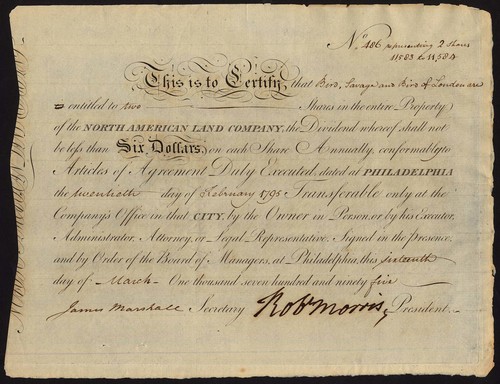 No. 486 representing 2 Shares
11583 to 11,584
This is to Certify, that Bird, Savage and Bird of London are
entitled to two Shares in the entire Property
of the NORTH AMERICAN LAND COMPANY, the Dividend whereof shall not
be less than Six Dollars, on each Share Annually, conformably to
Articles of Agreement Duly Executed, dated at PHILADELPHIA
the twentieth day of February 1795 Transferable only at the
Company's Office in that CITY, by the Owner in Person, or by his Executor,
Administrator, Attorney, or Legal Representative. Signed in the Presence,
and by Order of the Board of Managers, at Philadelphia, this sixteenth
day of March One thousand seven hundred and ninety five
James Marshall Secretary Robt Morris President.